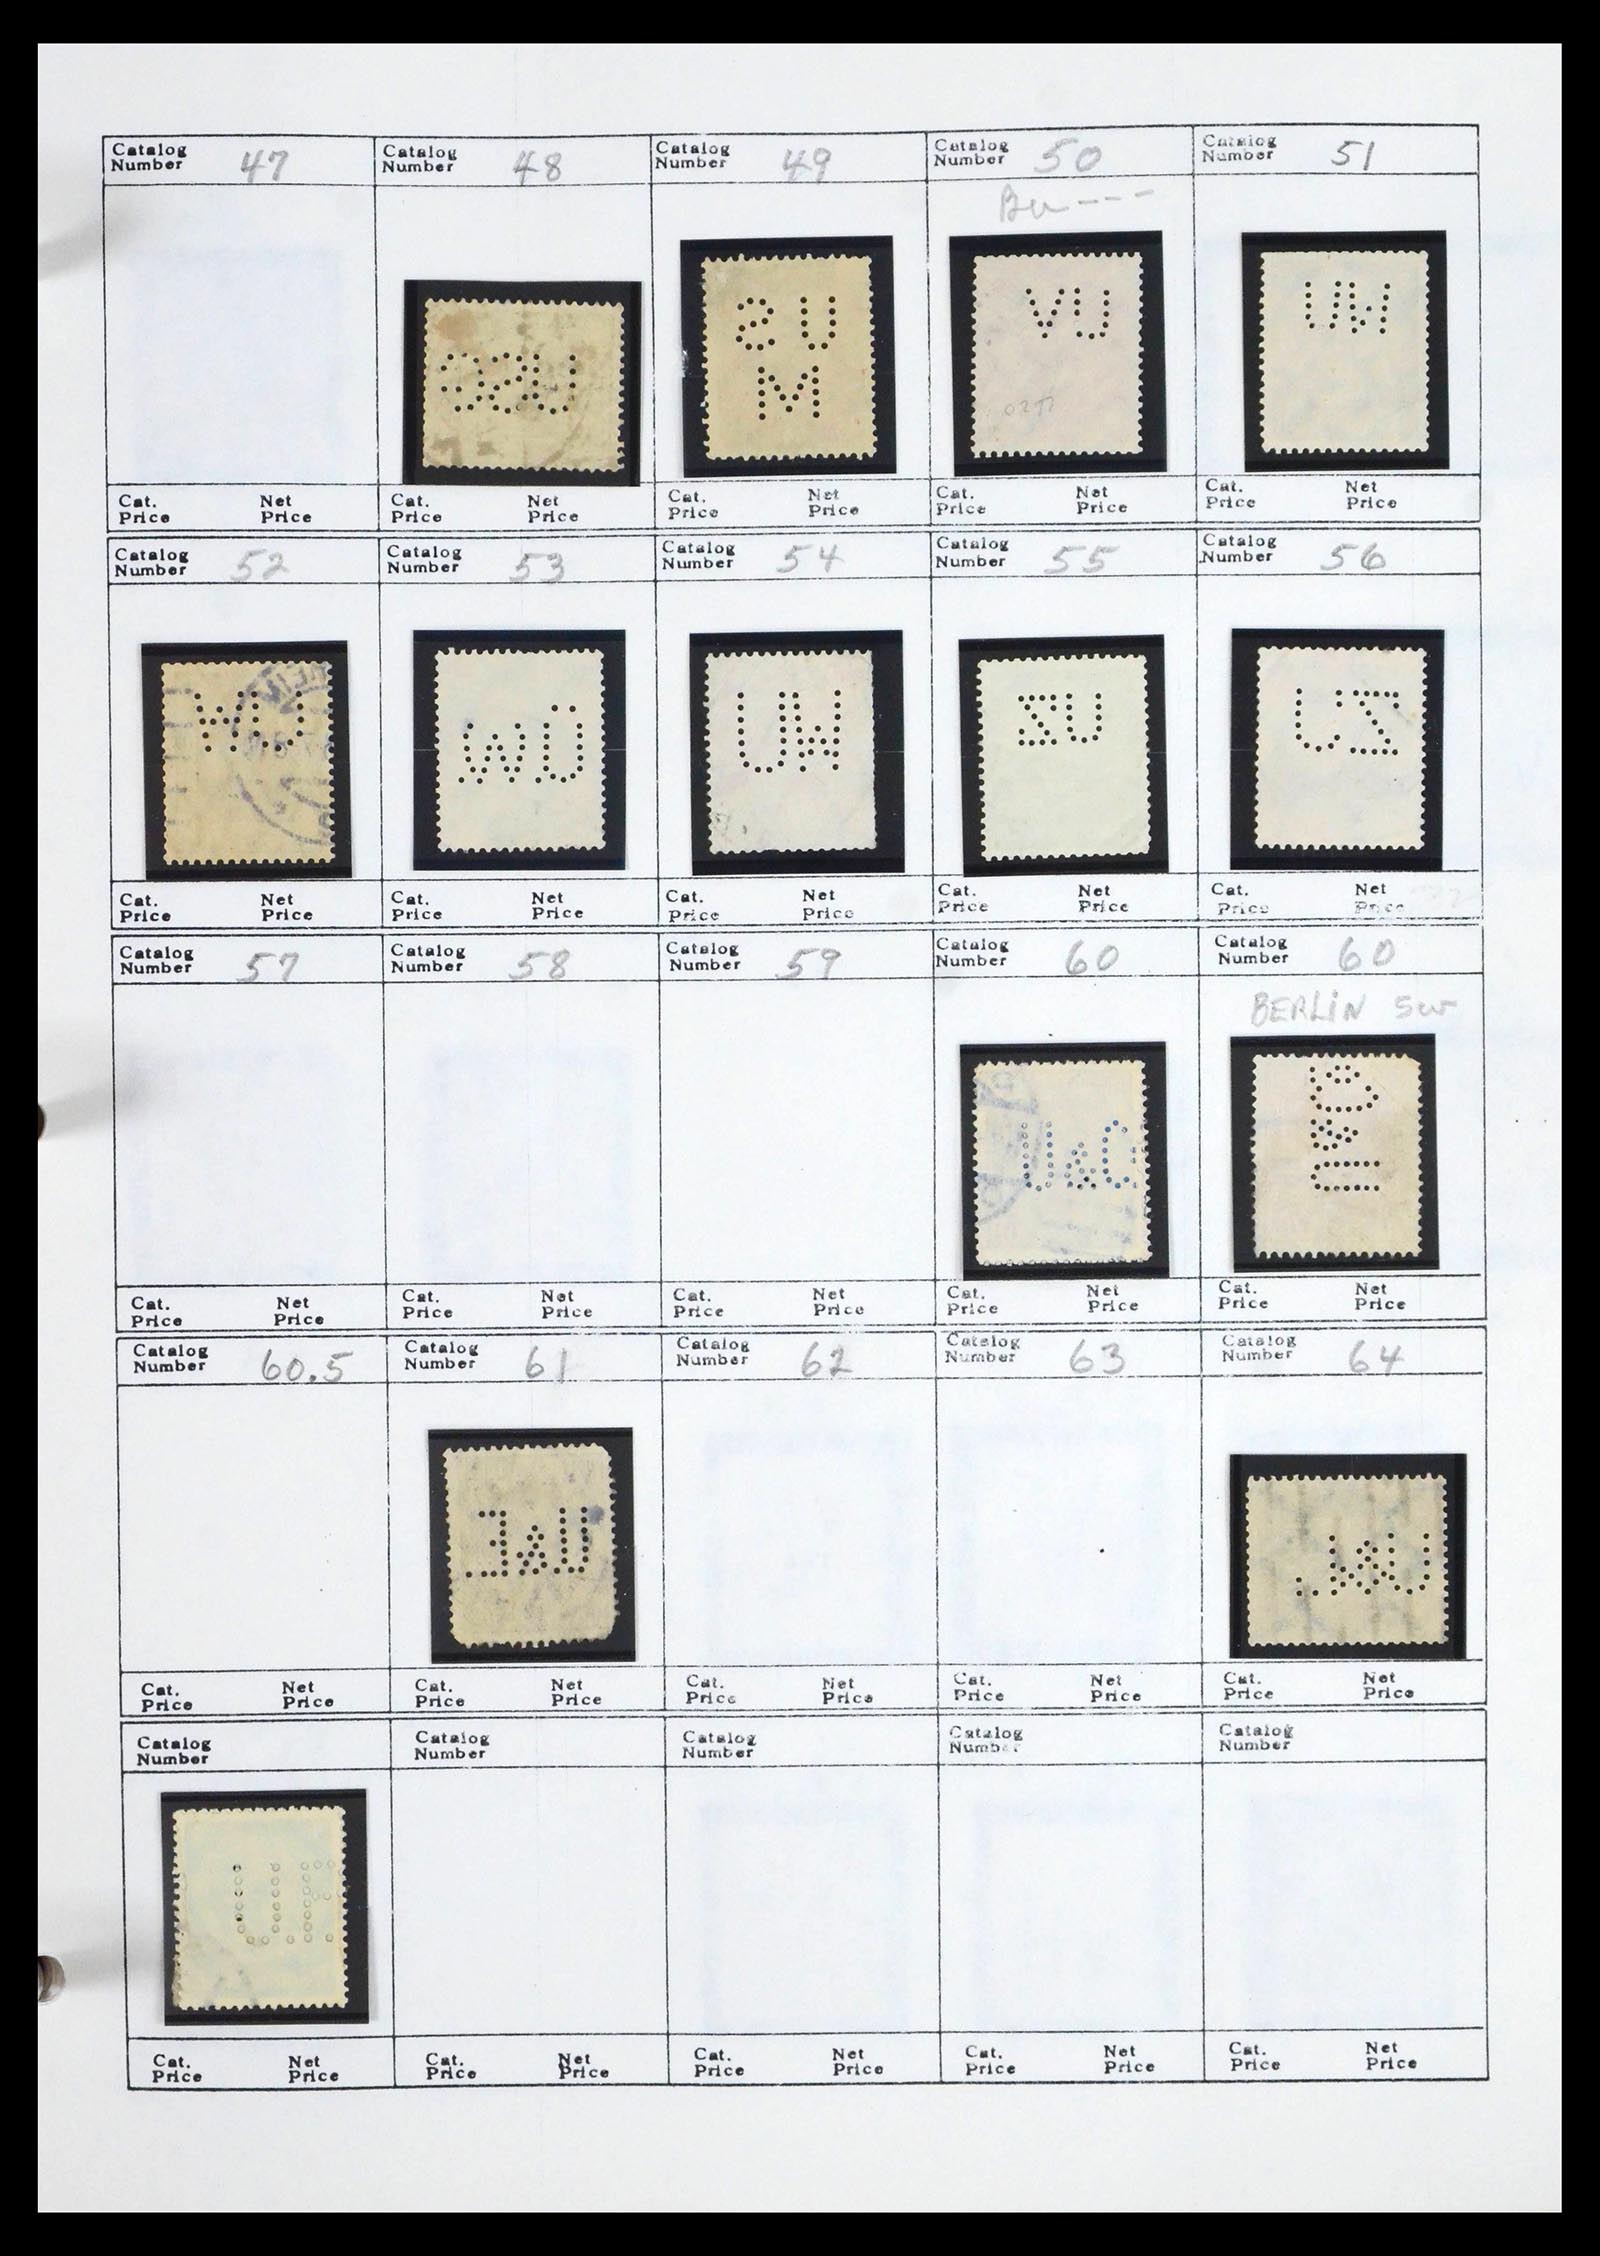 Catalog Number 47 Catalog Number 48 Catalog Number 49 Catalog Number 50 Catalog Number 51
USM
VU
UW
Cat. Price Net Price Cat. Price Net Price Cat. Price Net Price Cat. Price Net Price Cat. Price Net Price
Catalog Number 52 Catalog Number 53 Catalog Number 54 Catalog Number 55 Catalog Number 56
WÜ
UW
UZ
UZ
Cat. Price Net Price Cat. Price Net Price Cat. Price Net Price Cat. Price Net Price Cat. Price Net Price
Catalog Number 57 Catalog Number 58 Catalog Number 59 Catalog Number 60 Catalog Number 60
BERLIN SW
U&C
Cat. Price Net Price Cat. Price Net Price Cat. Price Net Price Cat. Price Net Price Cat. Price Net Price
Catalog Number 60.5 Catalog Number 61 Catalog Number 62 Catalog Number 63 Catalog Number 64
Cat. Price Net Price Cat. Price Net Price Cat. Price Net Price Cat. Price Net Price Cat. Price Net Price
Catalog Number Catalog Number Catalog Number Catalog Number Catalog Number
Cat. Price Net Price Cat. Price Net Price Cat. Price Net Price Cat. Price Net Price Cat. Price Net Price